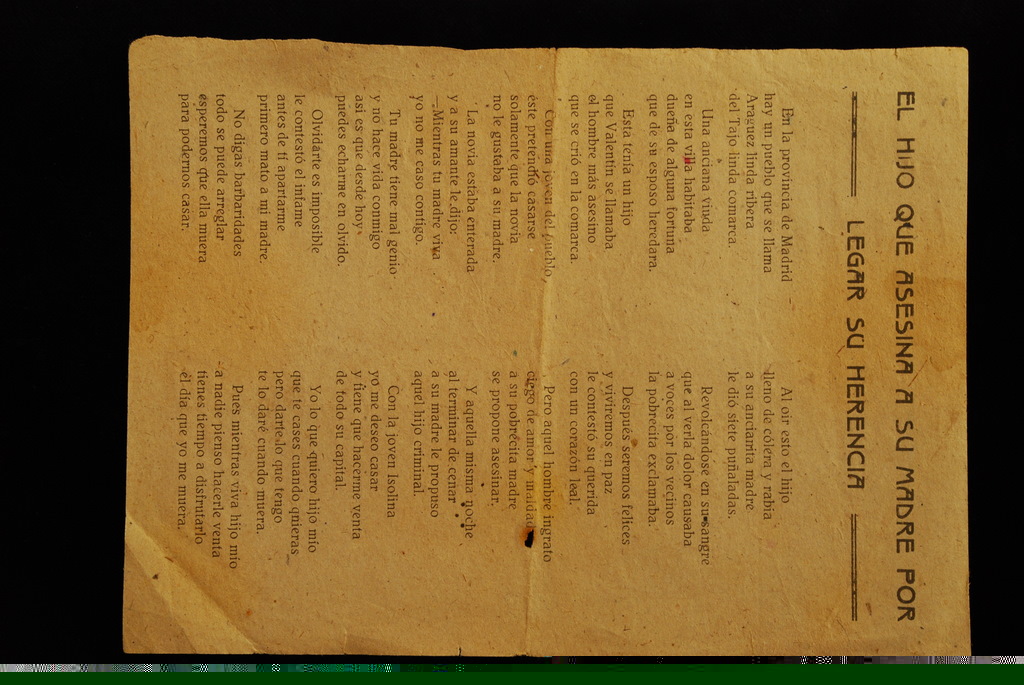 EL HIJO QUE ASESINA A SU MADRE POR
LEGAR SU HERENCIA
En la provincia de Madrid
hay un pueblo que se llama
Araguez linda ribera
del Tajo linda comarca.
Una anciana viuda
en esta villa habitaba
dueña de alguna fortuna
que de su esposo heredara.
Esta tenía un hijo
que Valentín se llamaba
el hombre más asesino
que se crió en la comarca.
Con una joven del pueblo,
éste pretendió casarse
solamente que la novia
no le gustaba a su madre.
La novia estaba enterada
y a su amante le dijo:
—Mientras tu madre viva
yo no me caso contigo.
Tu madre tiene mal genio
y no hace vida conmigo
asi es que desde hoy
puedes echarme en olvido.
Olvidarte es imposible
le contestó el infame
antes de tí apartarme
primero mato a mi madre.
No digas barbaridades
todo se puede arreglar
esperemos que ella muera
para podernos casar.
Al oir esto el hijo
lleno de cólera y rabia
a su ancianita madre
le dió siete puñaladas.
Revolcándose en su sangre
que al verla dolor causaba
a voces por los vecinos
la pobrecita exclamaba.
Después seremos felices
y viviremos en paz
le contestó su querida
con un corazón leal.
Pero aquel hombre ingrato
ciego de amor y maldad
a su pobrecita madre
se propone asesinar.
Y aquella misma noche
al terminar de cenar
a su madre le propuso
aquel hijo criminal.
Con la joven Isolina
yo me deseo casar
y tiene que hacerme venta
de todo su capital.
Yo lo que quiero hijo mío
que te cases cuando quieras
pero dartelo que tengo
te lo daré cuando muera.
Pues mientras viva hijo mío
a nadie pienso hacerle venta
tienes tiempo a disfrutarlo
el día que yo me muera.